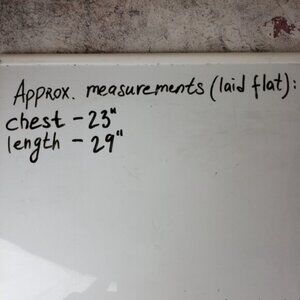 Approx. measurements (laid flat):
chest - 23"
length - 29"